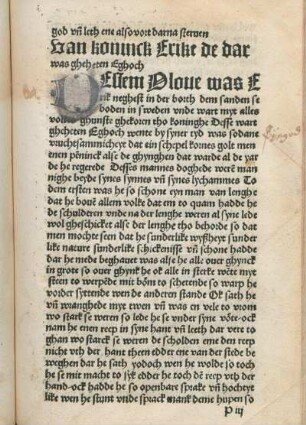 god vn̄ leth ene alsovort darna sterven
Van koninck Erike de dar
was gheheten Eghoch
DEssem Olove was E
rik neghest in der borth dem sanden se
boden in sweden vnde wart myt alles
volkes ghunste ghekoren tho koninghe Desse wart
gheheten Eghoch wente by syner tyd was sodane
vruchtsammicheyt dat ein schepel kornes golt men
enen pēninck alse de ghynghen dat warde al de yar
de he regerede Desses mannes doghede were man
nigh beyde synes synnes vn̄ synes lychammes To
dem ersten was he so schone eyn man van lenghe
dat he bouē allem volke dat em to quam hadde he
de schulderen vnde na der lenghe weren al syne lede
wol gheschicket alse der lenghe tho behorde so dat
men mochte seen dat he sunderlike wyßheyt sunder
like nature sunderlike schicktnisse vn̄ schone hadde
dar he mede beghauet was alse he alle ouer ghynck
in grote so ouer ghynk he ok alle in sterke wēte myt
steen to werpēde mit bōm to schetende so warp he
vorder syttende wen de anderen stande Ok sath he
vn̄ wanghede myt twen vn̄ was en vele to vorn
wo starck se weren so lede he se vnder syne vōte ock
nam he enen reep in syne hant vn̄ leeth dar vere to
ghan wo starck se weren de scholden eme den reep
nicht vth der hant theen edder ene van der stede be
weghen dar he sath yodoch wen he wolde so toch
he se mit macht to syk edder he toch dē reep vth der
hand ock hadde he so openbare sprake vn̄ hocheye
like wen he stunt vnde sprack mank deme hupen so
P iij